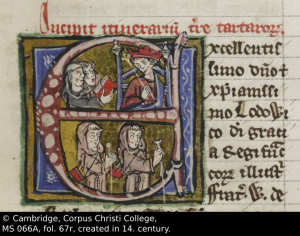 Incipit itinerariū fr̄e tartarorꝫ.
xcellentis
simo dn̄o ⁊
xp̄ianissi
mo Lodowi
co di grati
a Regi
illustr
W. de
© Cambridge, Corpus Christi College,
MS 066A, fol. 67r, created in 14. century.